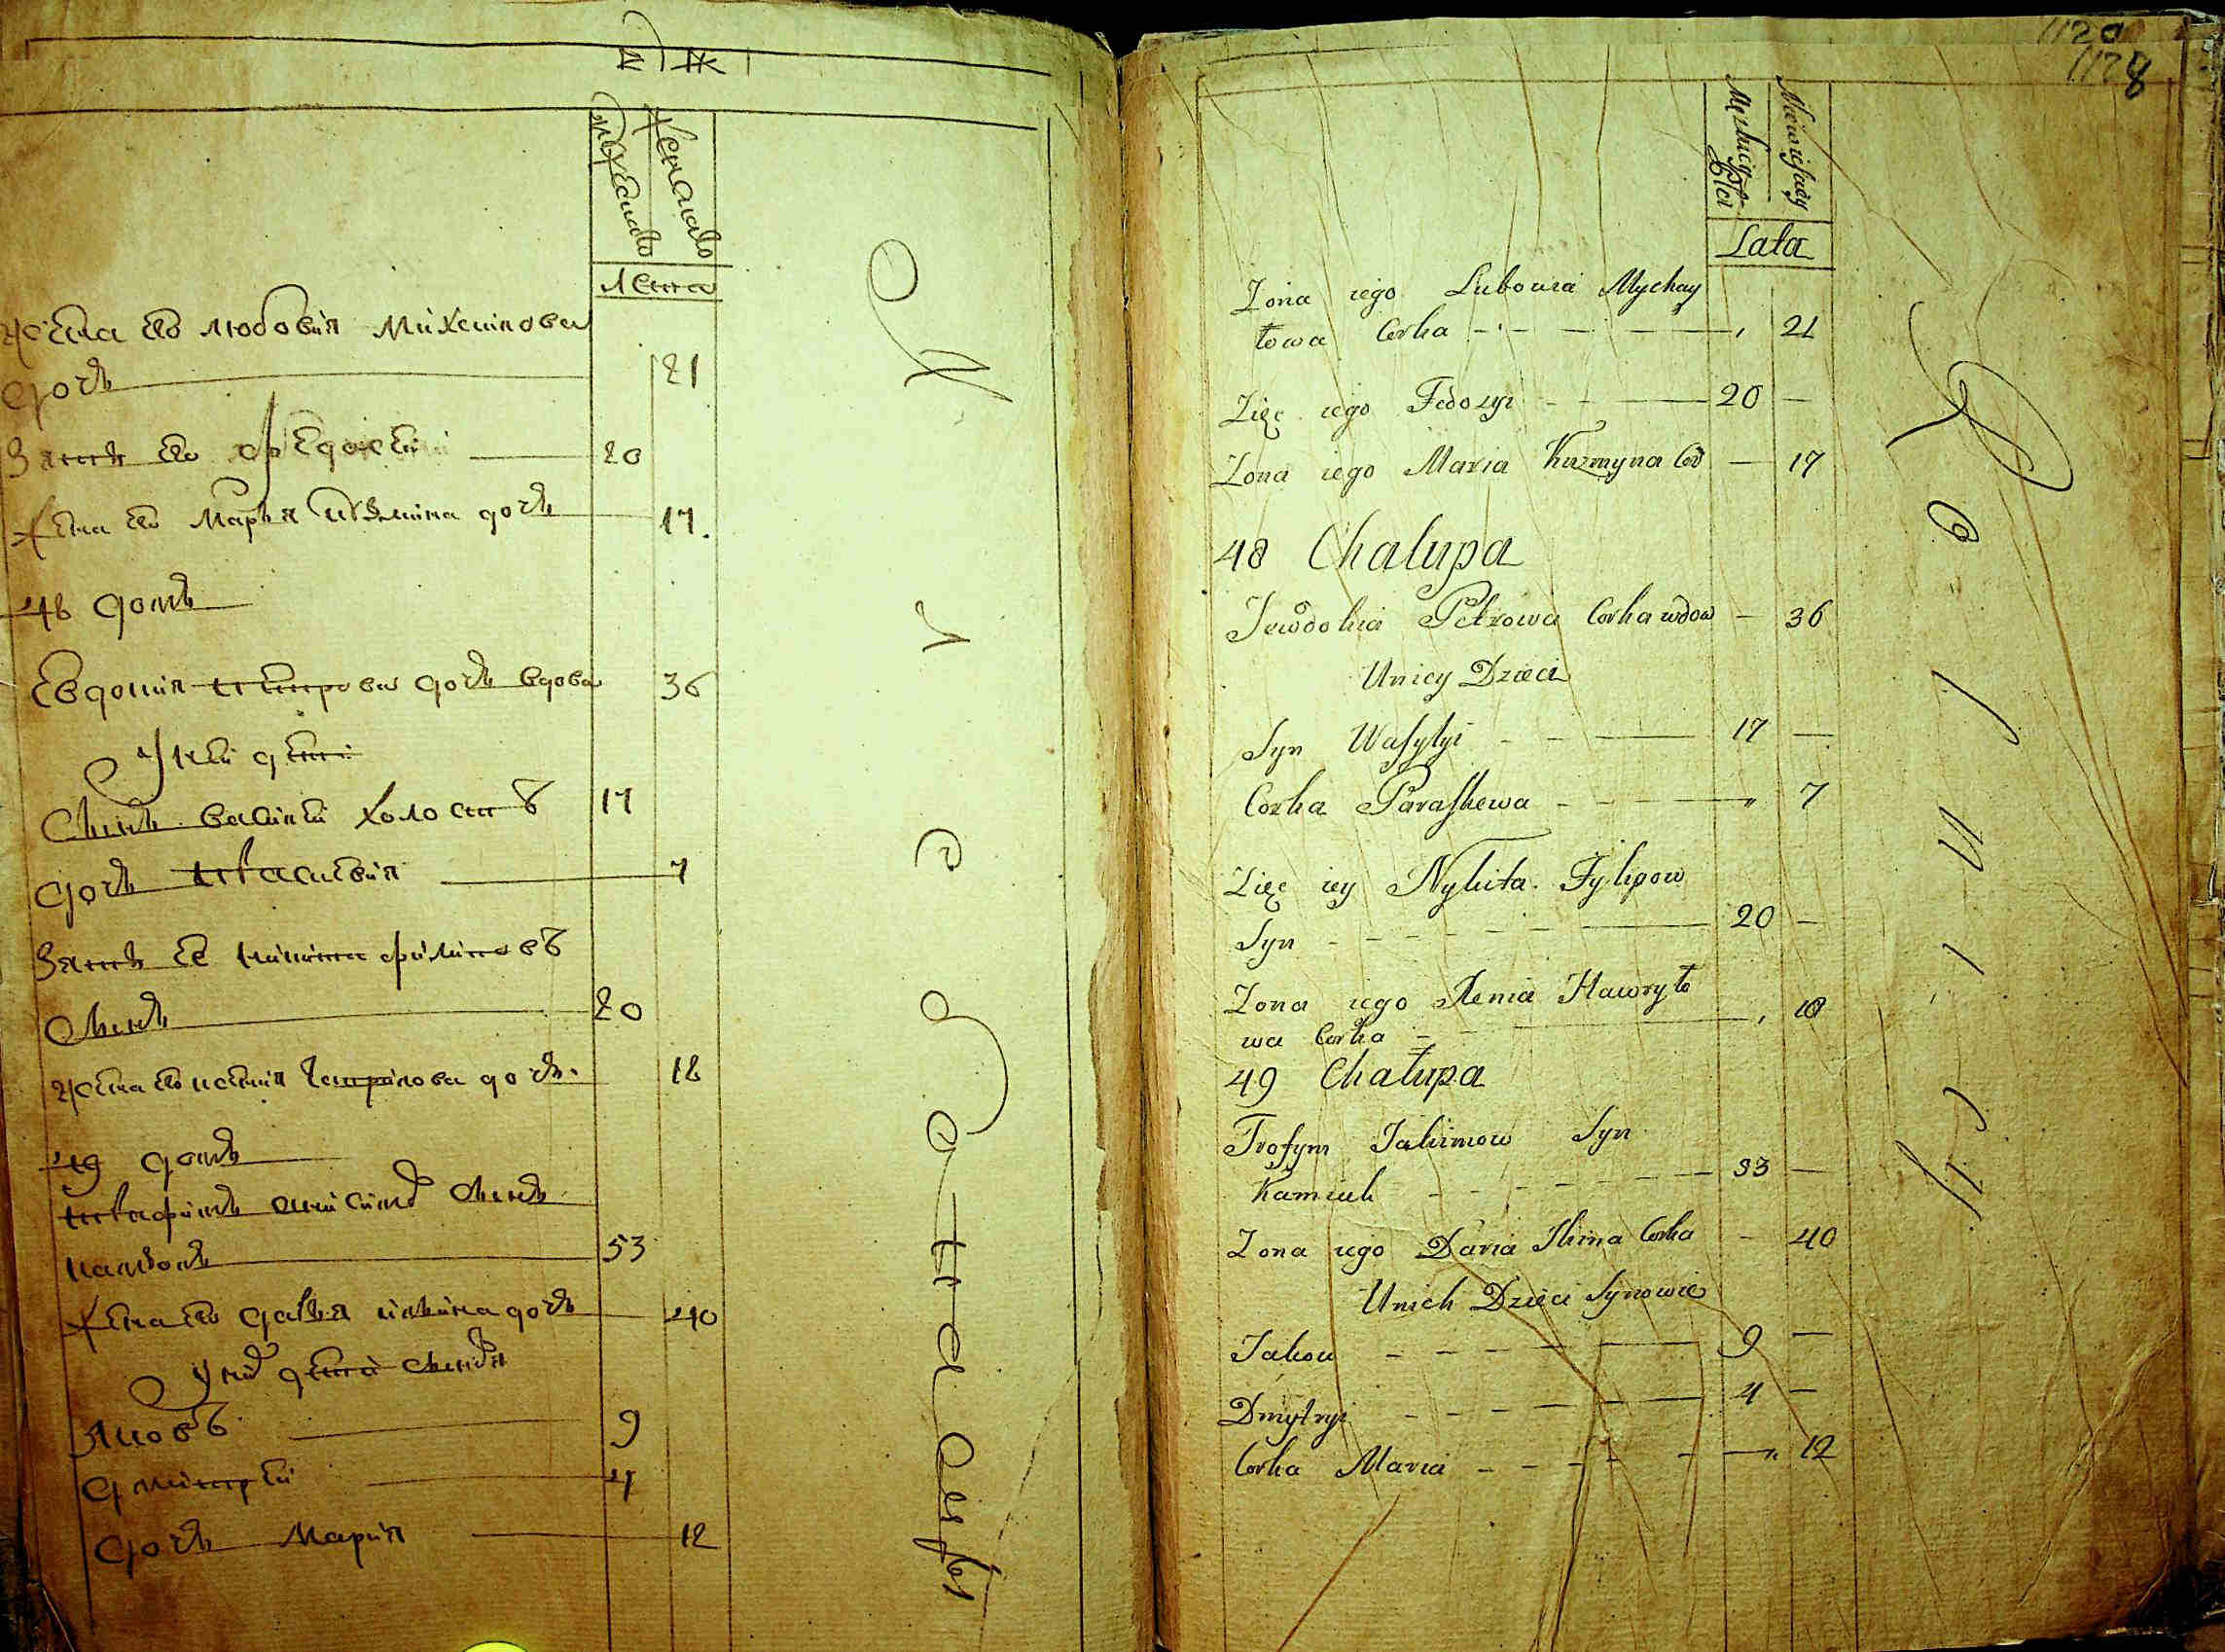 мужеска
женска
лета
жена его любовия михаилова
дочь 21
зять его федосей 20
жена его марья кузмина дочь 17.
48 домъ
евдокия петрова дочь вдова 36
у ней дети
сынъ василей холостъ 17
дочь парасковия 7
зять ее никита филиповъ
сынъ 20
жена его ксения гаврилова дочь. 18
49 домъ
53
жена его дарья ильина дочь 40
у них дети сыновья
яковъ 9
дмитрей 4
дочь мария 12
1120
1128
Męskiey Płci
Niewieściey
Lata
Zona iego Lubowia Mychay
łowa Corka 21
Zięc iego Fedosyi 20
Zona iego Maria Kuzmyna Cor 17
48 Chalupa
Jewdokia Petrowa Corka wdow 36
Uniey Dzieci
Syn Wasylyi 17
Corka Paraskewa 7
Zięc iey Nykita Fylipow
Syn 20
Zona iego Xenia Hawryło
wa Corka 18
49 Chałupa
Trofym Jakimow Syn
53
Zona iego Daria Ilina Corka 40
Unich Dzieci Synowie
Jakow 9
Dmytryi 4
Corka Maria 12